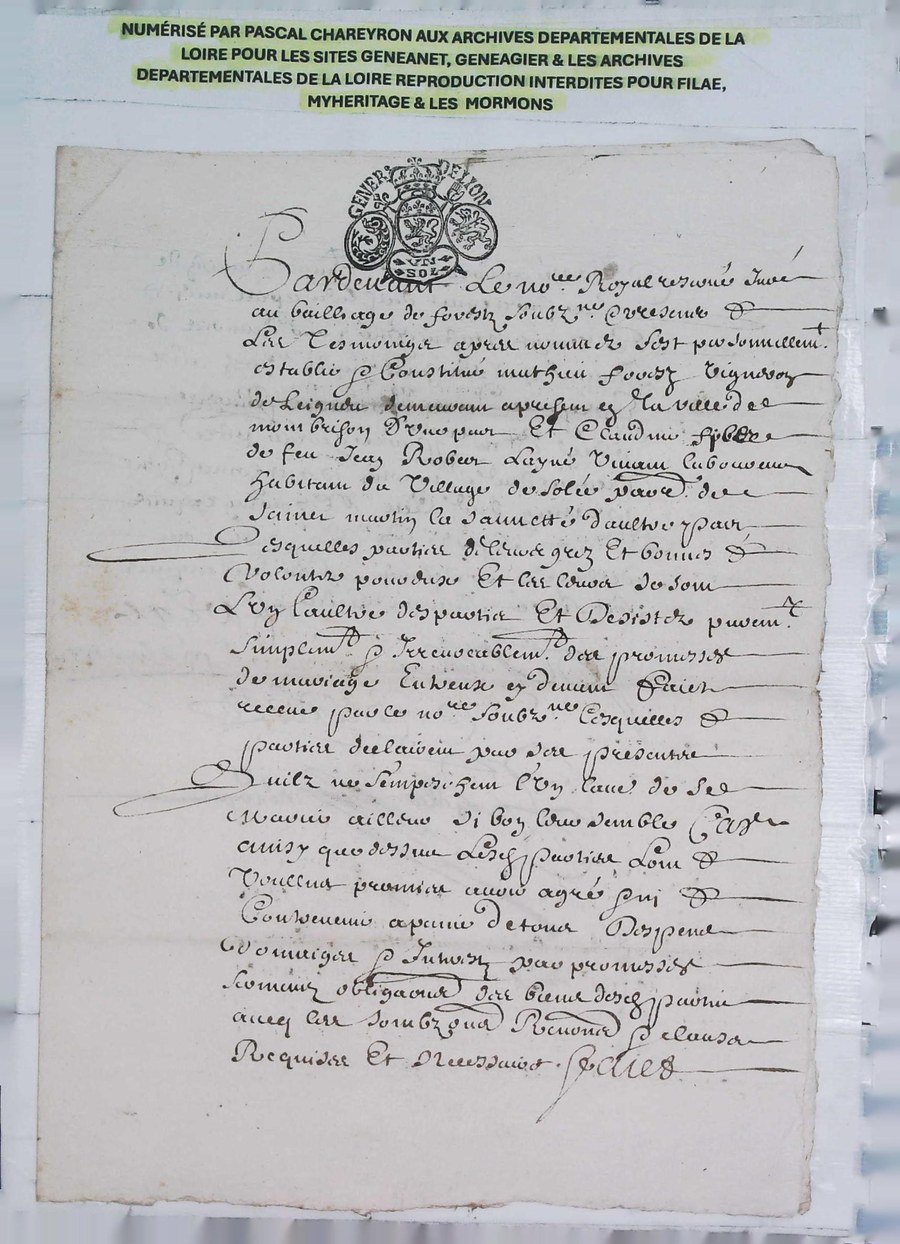 NUMÉRISÉ PAR PASCAL CHAREYRON AUX ARCHIVES DEPARTEMENTALES DE LA
LOIRE POUR LES SITES GENEANET, GENEAGIER & LES ARCHIVES
DEPARTEMENTALES DE LA LOIRE REPRODUCTION INTERDITES POUR FILAE,
MYHERITAGE & LES MORMONS
GENER DE LION
UN
SOL
Pardevant Le nore Royal reservé Juré
au bailliage de forestz soubzne &
Les tesmoingz apres nommez sest personnellemt
establiz & Constitué mathieu forest vigneron
de Leignieu demeurant a present en la ville de
montbrison d'une part Et Claudine
de feu Jean Robert Layné vivant laboureur
habitant du village de parr. de
sainct martin la sauveté d'aultre part
Lesquelles parties de leurs grez Et bonnes
Volontez pour eux Et les leurs se sont
L'un L'aultre despartis Et Desistez puremt
simplemt & Irrevocablemt des promesses
de mariage Entreux cy devant faictes
receue par le nore soubzne Lesquelles
parties declairent par ses presentes
Quilz ne sempeschent l'un laue de se
marier ailleurs si bon leur semble Car
ainsy que dessus Lesd parties Lont
Voullus promise avoir agré &
Contrevenir a peine de tous Despens
Domaiges & Interestz par promesses
sermentz obligaons des biens desd parties
avecq les soubzons Renons & clauses
Requises Et necessaires faictes